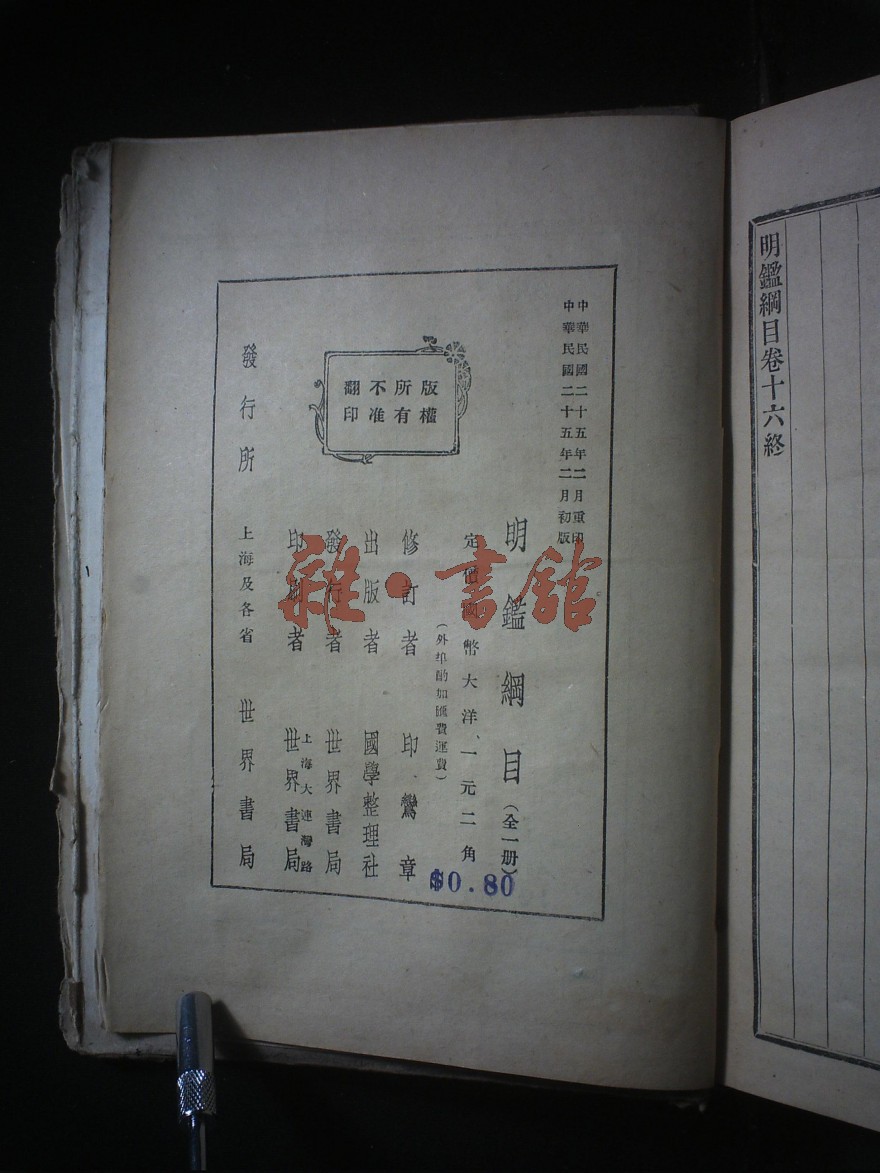 明鑑綱目卷十六終
中華民國二十五年二月重印
中華民國二十五年二月初版
明鑑綱目（全一册）
定價國幣大洋一元二角
（外埠酌加匯費運費）
$0.80
修訂者 印鸞章
出版者 國學整理社
發行者 世界書局
上海大連灣路
印刷者 世界書局
版權
所有
不准
翻印
發行所 上海及各省 世界書局
雜·書館